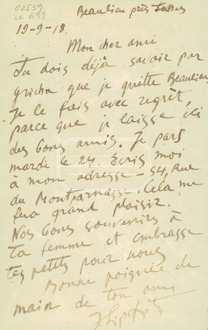 02559
Beaulieu près Loches
19-9-18.
Mon cher ami
Tu dois déjà savoir par
gricha que je quitte Beaulieu
Je le fais avec regret,
parce que je laisse ici
des bons amis. Je pars
mardi le 24. Ecris moi
à mon adresse - 54, Rue
du Montparnasse Cela me
fera grand plaisir.
Nos bons souvenirs à
ta femme et embrasse
tes petits pour nous
Bonne poignée de
main de ton ami